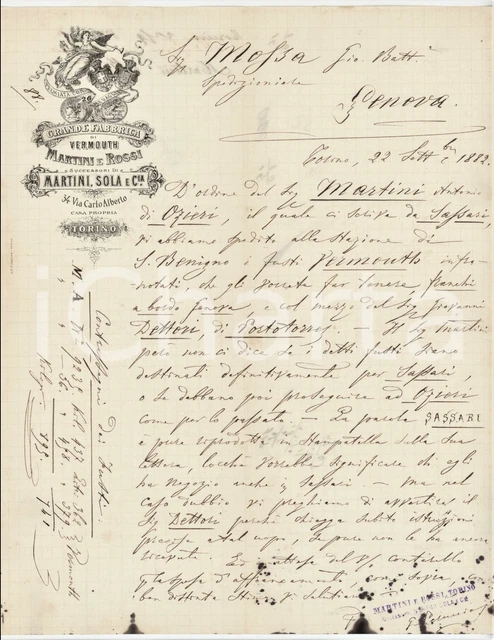 GRANDE FABBRICA
DI
VERMOUTH
MARTINI E ROSSI
SUCCESSORI DI
MARTINI, SOLA E Cia
34 Via Carlo Alberto
CASA PROPRIA
TORINO
Sig. Mossa Gio. Batt.
Spedizioniere
Genova.
Torino, 22 Settbre 1882.
D'ordine del Sig Martini Antonio
di Ozieri, il quale ci scrive da Sassari,
vi abbiamo spedito alla Stazione di
S. Benigno i fusti Vermouth infra-
notati, che gli vorrete far tenere, franchi
a bordo Genova, e col mezzo del Sig Giovanni
Dettori, di Portotorres. — Il Sig Martini
però non ci dice se i detti fusti siano
destinati definitivamente per Sassari
o se debbano poi proseguire ad Ozieri
come per lo passato. — La parola SASSARI
è pure riprodotta in stampatella sulla sua
lettera, locchè vorrebbe significare che egli
ha negozio anche a Sassari. — Ma nel
caso dubbio vi preghiamo di avvertire il
Sig Dettori perchè chiegga subito istruzioni
precise al uopo, se pure non le ha ancora
ricevute. Ed attesa del Vs/ contabille
di affrancamento, come sopra, con
ben distinta stima vi salutiamo
MARTINI E ROSSI, TORINO
Contrassegni dei fusti
M. A. N.
Vermouth
iCharta